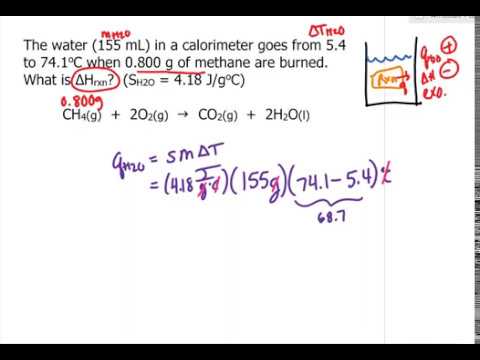 mH2O
ΔTH2O
The water (155 mL) in a calorimeter goes from 5.4
to 74.1ºC when 0.800 g of methane are burned.
What is ΔHrxn? (SH2O = 4.18 J/gºC)
0.800g
CH4(g) + 2O2(g) → CO2(g) + 2H2O(l)
qH2O +
Rxn q ΔH −
exo.
qH2O = s m ΔT
= (4.18 J/g·c)(155g)(74.1-5.4)ºc
68.7